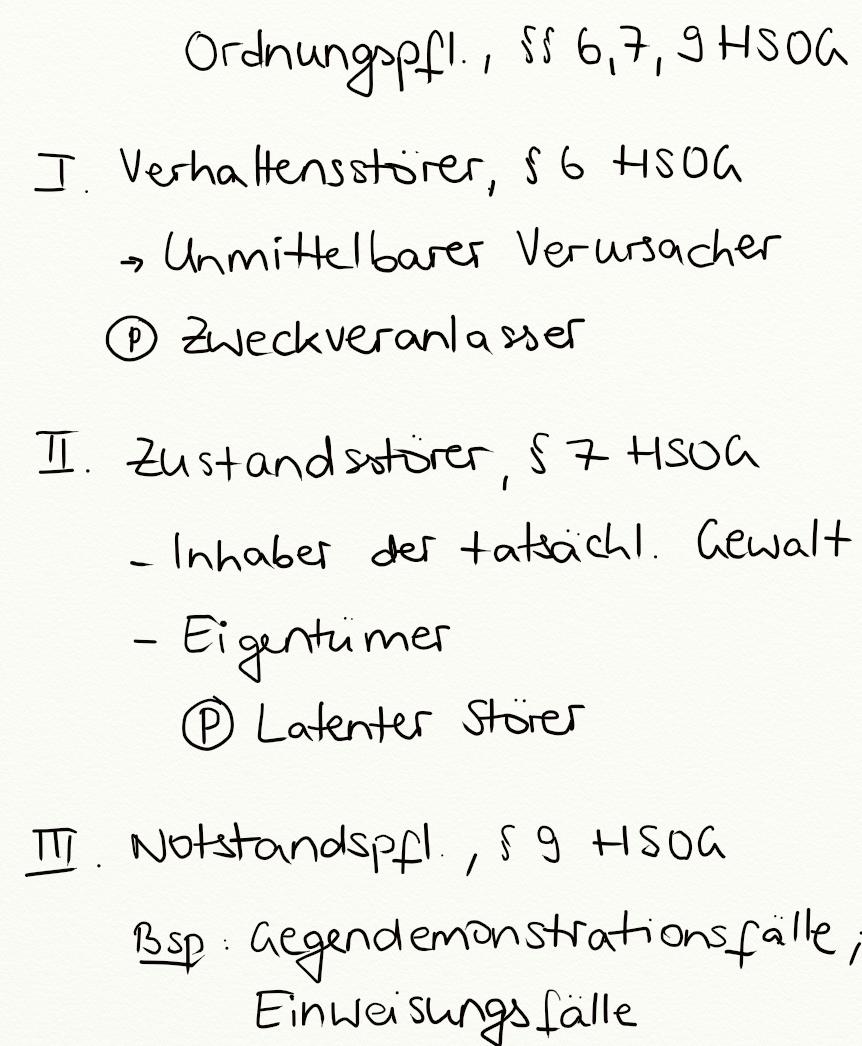 Ordnungspfl., §§ 6, 7, 9 HSOG
I. Verhaltensstörer, § 6 HSOG
→ Unmittelbarer Verursacher
Ⓟ Zweckveranlasser
II. Zustandsstörer, § 7 HSOG
- Inhaber der tatsächl. Gewalt
- Eigentümer
Ⓟ Latenter Störer
III. Notstandspfl., § 9 HSOG
Bsp: Gegendemonstrationsfälle,
Einweisungsfälle